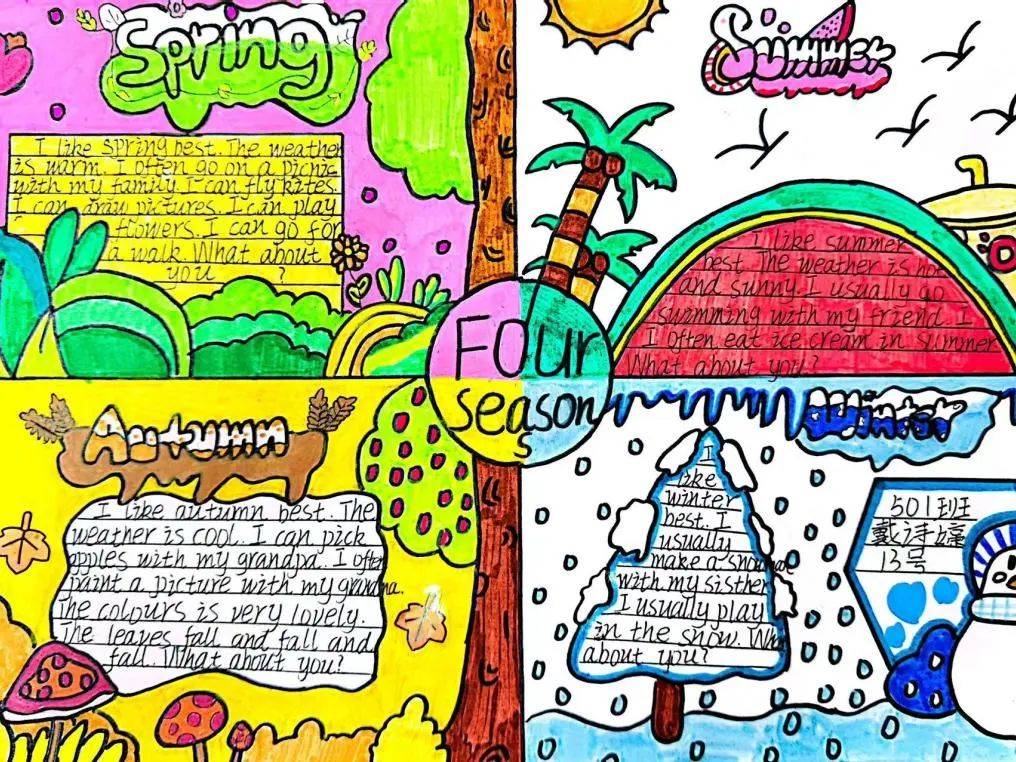 Spring
I like spring best. The weather
is warm. I often go on a picnic
with my family. I can fly kites.
I can draw pictures. I can play
flowers. I can go for
a walk. What about
you ?
Summer
I like summer
best. The weather is hot
and sunny. I usually go
swimming with my friend I
I often eat ice cream in summer
What about you?
Four
season
Autumn
I like autumn best. The
weather is cool. I can pick
apples with my grandpa. I often
paint a picture with my grandma.
The colours is very lovely.
The leaves fall and fall and
fall. What about you?
Winter
I
like
winter
best. I
usually
make a snowman
with my sisther
I usually play
in the snow. What
about you?
501班
戴诗
13号